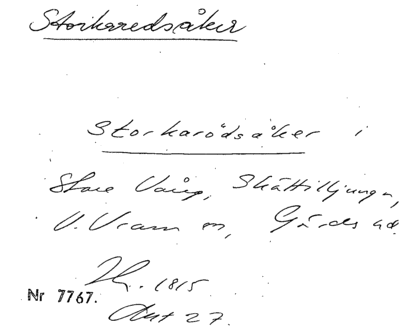 Storkaredsåker
Storkarödsåker i
Store Vång, Skättilljunga,
V. Vram sn, Gärds hd.
1815
Nr 7767.
Akt 27.